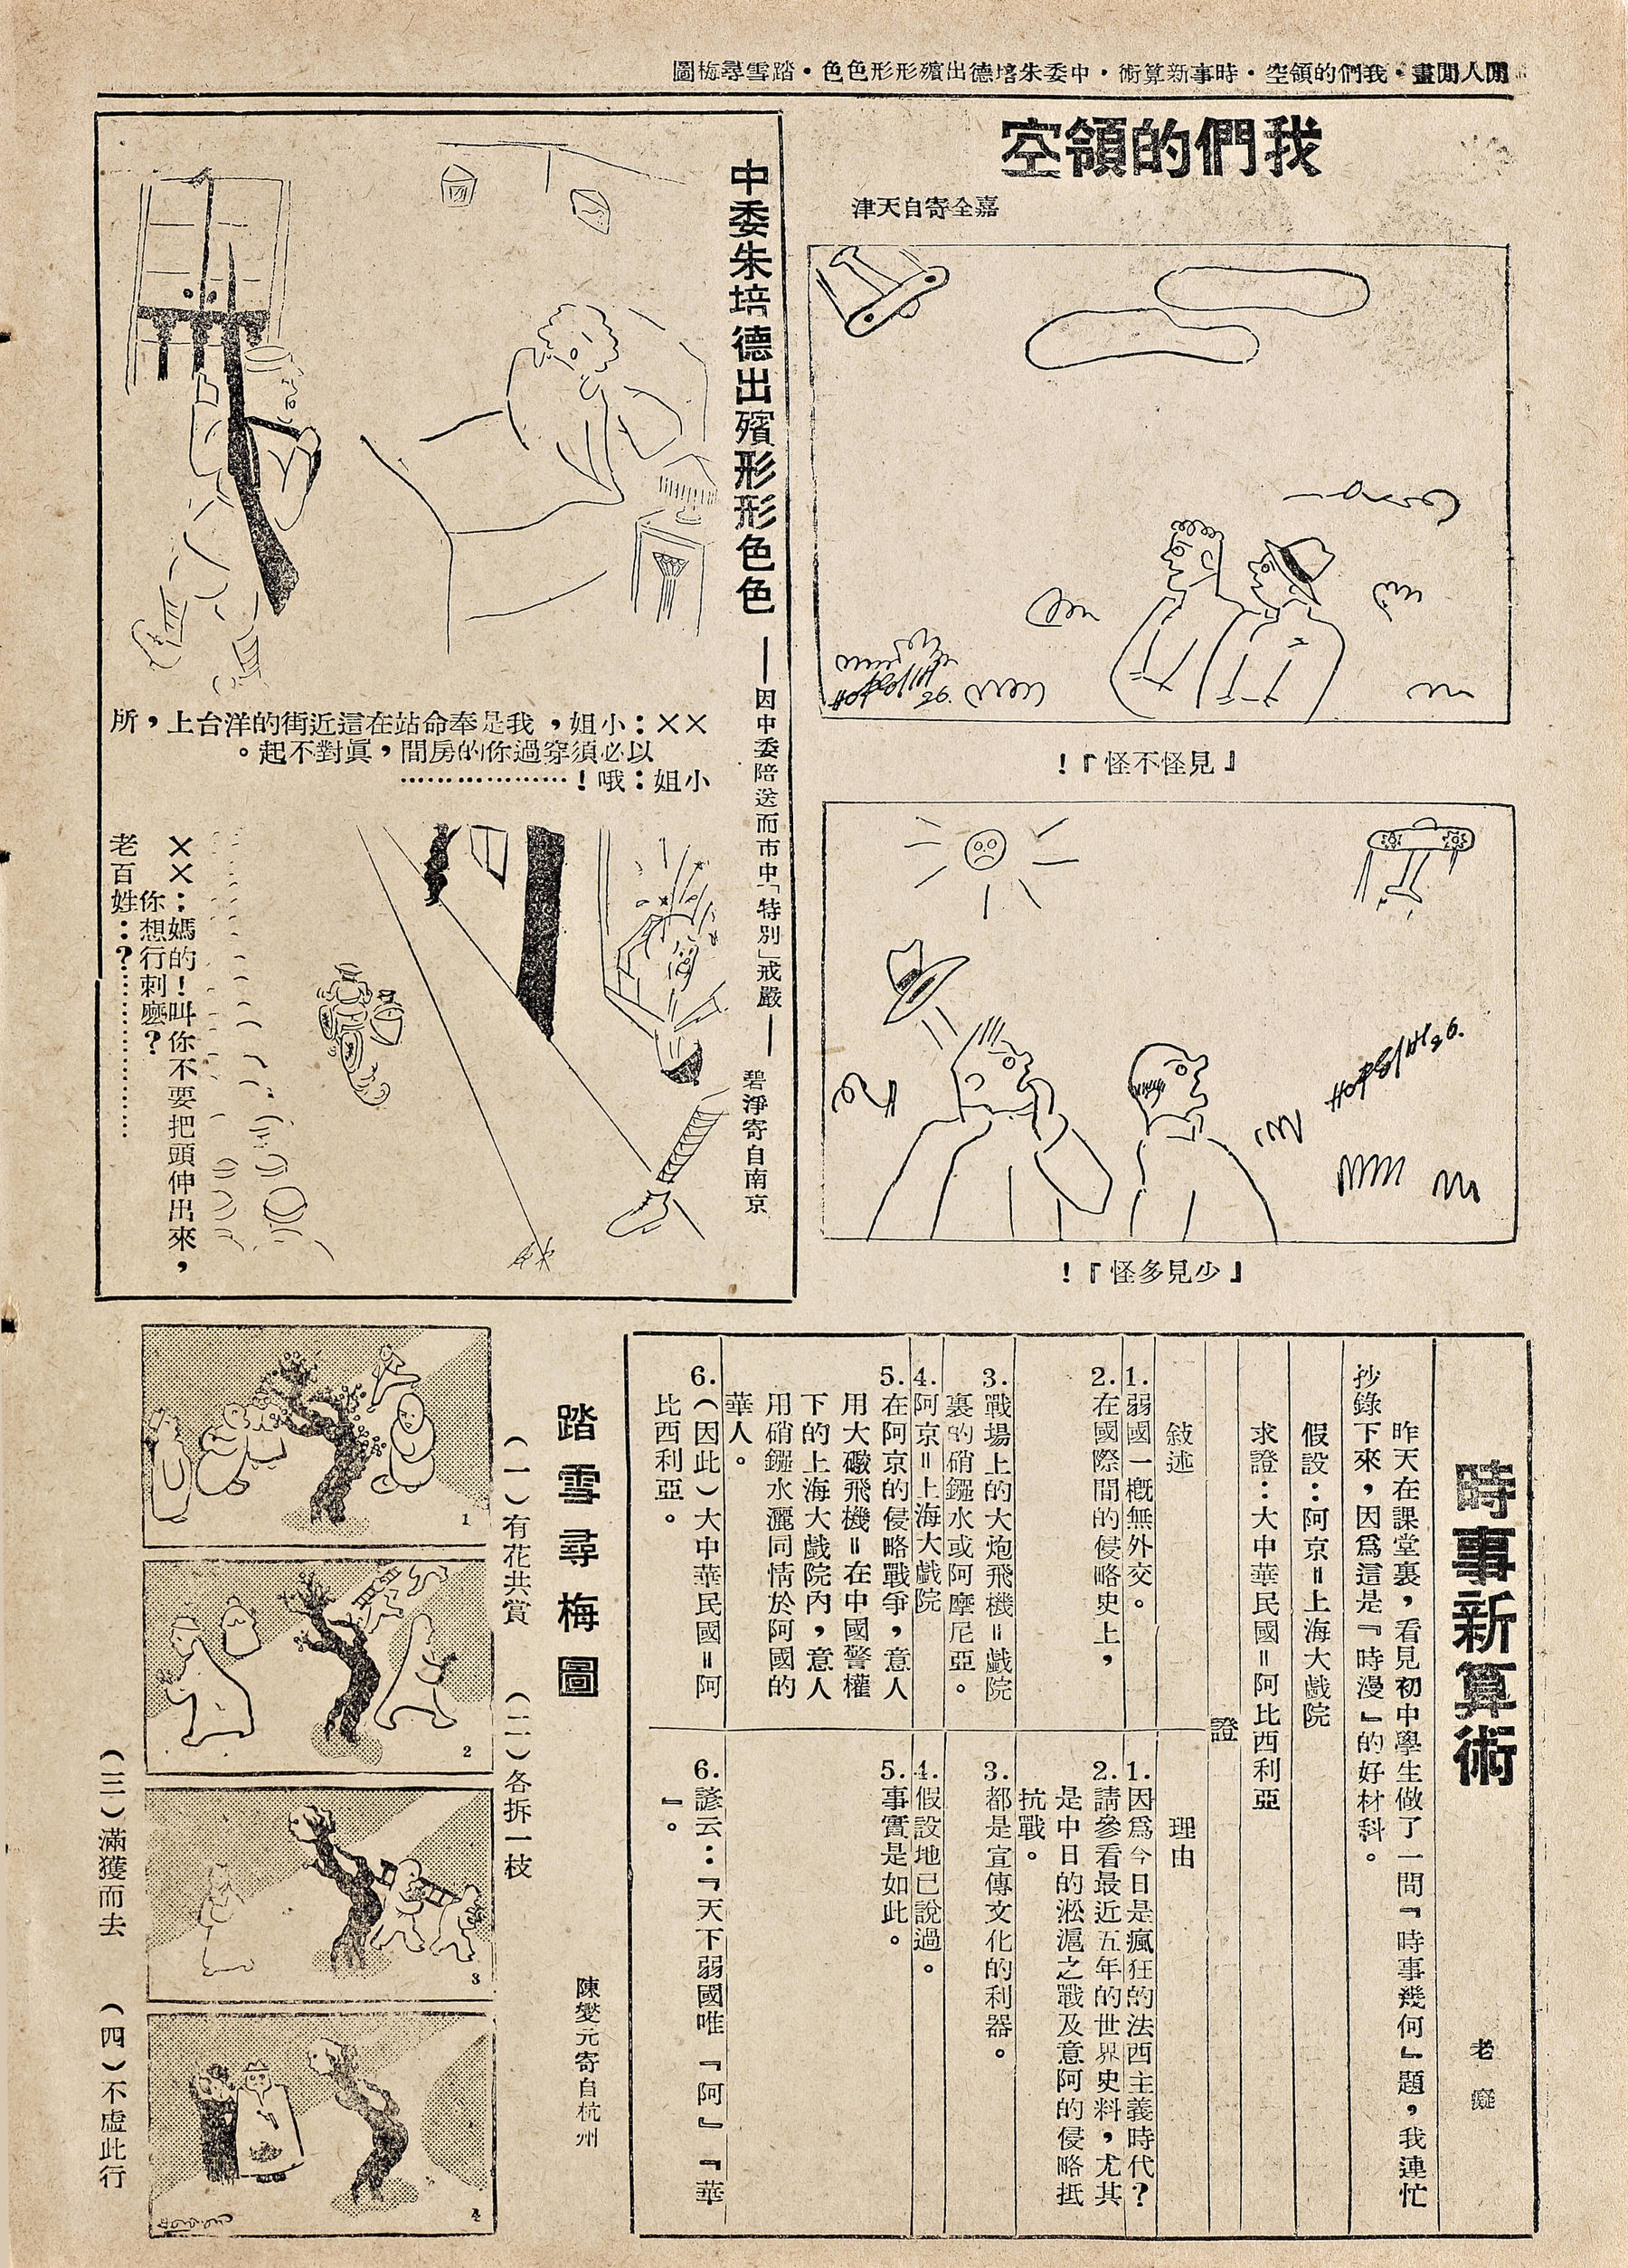 閒人閒畫・我們的領空・時事新算術・中委朱培德出殯形形色色・踏雪尋梅圖
我們的領空
嘉全寄自天津
26.
『見怪不怪』！
26.
『少見多怪』！
中委朱培德出殯形形色色
——因中委陪送而市中「特別」戒嚴——
碧淨寄自南京
××：小姐，我是奉命站在這近街的洋台上，所
以必須穿過你的房間，眞對不起。
小姐：哦！………………
××：媽的！叫你不要把頭伸出來，
你想行刺麼？
老百姓：？………………
時事新算術
老癡
昨天在課堂裏，看見初中學生做了一問『時事幾何』題，我連忙
抄錄下來，因爲這是『時漫』的好材料。
假設：阿京＝上海大戲院
求證：大中華民國＝阿比西利亞
證
敍述
1.弱國一概無外交。
2.在國際間的侵略史上，
3.戰場上的大炮飛機＝戲院
裏的硝鏹水或阿摩尼亞。
4.阿京＝上海大戲院
5.在阿京的侵略戰爭，意人
用大礮飛機＝在中國警權
下的上海大戲院內，意人
用硝鏹水灑同情於阿國的
華人。
6.（因此）大中華民國＝阿
比西利亞。
理由
1.因爲今日是瘋狂的法西主義時代？
2.請參看最近五年的世界史料，尤其
是中日的淞滬之戰及意阿的侵略抵
抗戰。
3.都是宣傳文化的利器。
4.假設地已說過。
5.事實是如此。
6.諺云：『天下弱國唯『阿』『華
』。
踏雪尋梅圖
陳變元寄自杭州
（一）有花共賞
（二）各拆一枝
（三）滿獲而去
（四）不虛此行
1
2
3
4